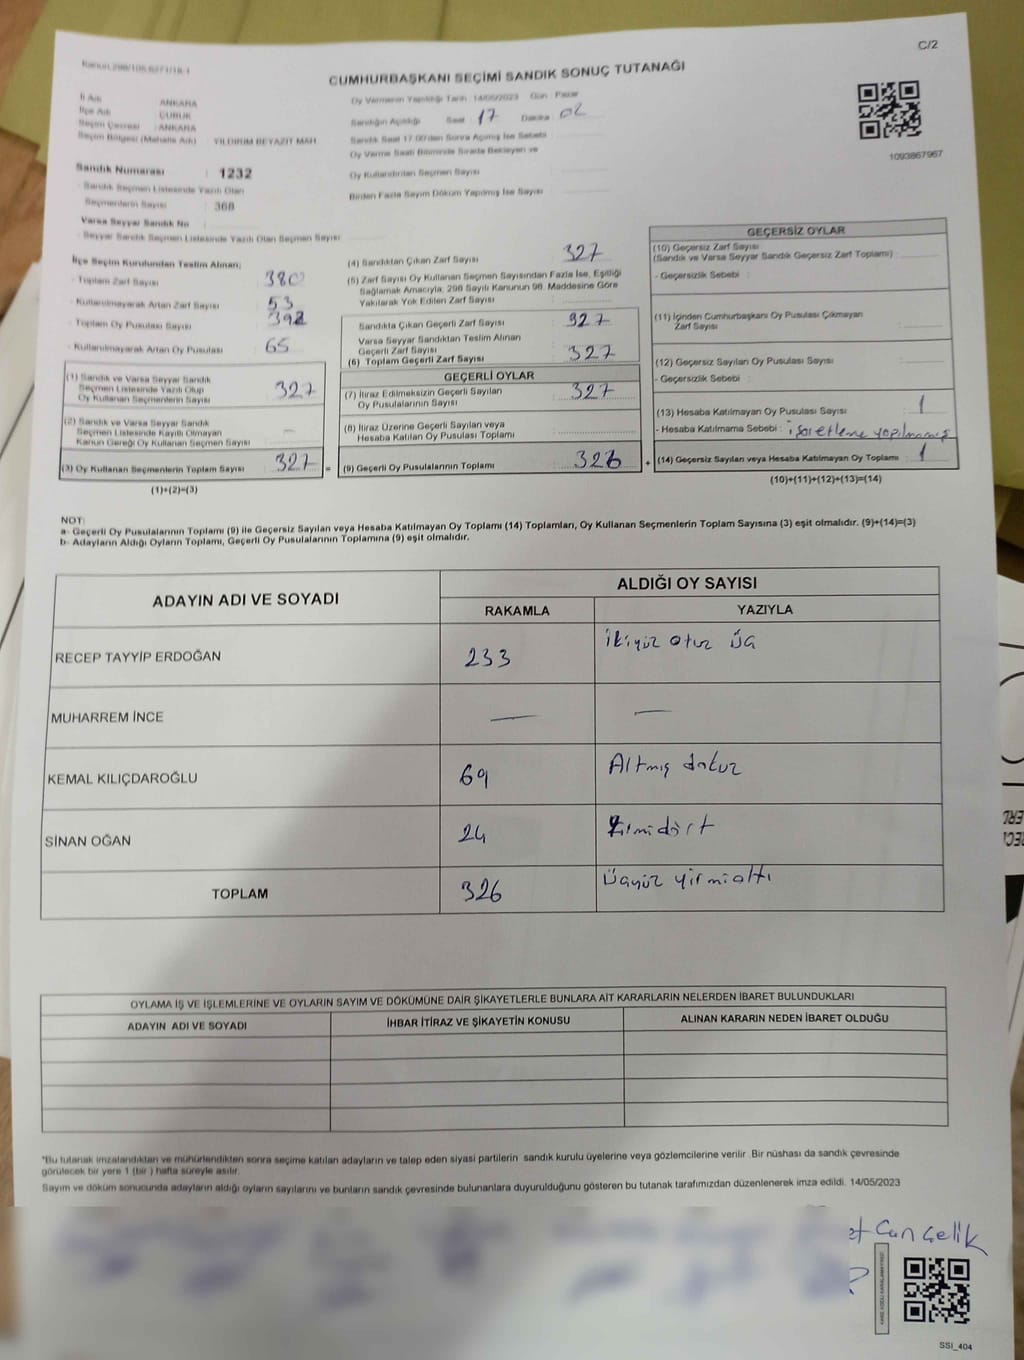 C/2
Kanun:298/105,6271/18-1
CUMHURBAŞKANI SEÇİMİ SANDIK SONUÇ TUTANAĞI
İl Adı : ANKARA
İlçe Adı : ÇUBUK
Seçim Çevresi : ANKARA
Seçim Bölgesi (Mahalle Adı) : YILDIRIM BEYAZIT MAH
Sandık Numarası : 1232
- Sandık Seçmen Listesinde Yazılı Olan
Seçmenlerin Sayısı : 368
Varsa Seyyar Sandık No
- Seyyar Sandık Seçmen Listesinde Yazılı Olan Seçmen Sayısı
Oy Vermenin Yapıldığı Tarih 14/05/2023 Gün Pazar
Sandığın Açıldığı Saat : 17 Dakika : 02
Sandık Saat 17.00'den Sonra Açılmış İse Sebebi
Oy Verme Saati Bitiminde Sırada Bekleyen ve
Oy Kullandırılan Seçmen Sayısı
Birden Fazla Sayım Döküm Yapılmış İse Sayısı
1093867967
İlçe Seçim Kurulundan Teslim Alınan;
- Toplam Zarf Sayısı : 380
- Kullanılmayarak Artan Zarf Sayısı : 53
- Toplam Oy Pusulası Sayısı : 392
- Kullanılmayarak Artan Oy Pusulası : 65
(1) Sandık ve Varsa Seyyar Sandık
Seçmen Listesinde Yazılı Olup
Oy Kullanan Seçmenlerin Sayısı : 327
(2) Sandık ve Varsa Seyyar Sandık
Seçmen Listesinde Kayıtlı Olmayan
Kanun Gereği Oy Kullanan Seçmen Sayısı : —
(3) Oy Kullanan Seçmenlerin Toplam Sayısı : 327
(1)+(2)=(3)
(4) Sandıktan Çıkan Zarf Sayısı : 327
(5) Zarf Sayısı Oy Kullanan Seçmen Sayısından Fazla İse, Eşitliği
Sağlamak Amacıyla, 298 Sayılı Kanunun 98. Maddesine Göre
Yakılarak Yok Edilen Zarf Sayısı :
Sandıkta Çıkan Geçerli Zarf Sayısı : 327
Varsa Seyyar Sandıktan Teslim Alınan
Geçerli Zarf Sayısı :
(6) Toplam Geçerli Zarf Sayısı : 327
GEÇERLİ OYLAR
(7) İtiraz Edilmeksizin Geçerli Sayılan
Oy Pusulalarının Sayısı : 327
(8) İtiraz Üzerine Geçerli Sayılan veya
Hesaba Katılan Oy Pusulası Toplamı :
= (9) Geçerli Oy Pusulalarının Toplamı : 326
GEÇERSİZ OYLAR
(10) Geçersiz Zarf Sayısı
(Sandık ve Varsa Seyyar Sandık Geçersiz Zarf Toplamı) :
- Geçersizlik Sebebi :
(11) İçinden Cumhurbaşkanı Oy Pusulası Çıkmayan
Zarf Sayısı :
(12) Geçersiz Sayılan Oy Pusulası Sayısı :
- Geçersizlik Sebebi :
(13) Hesaba Katılmayan Oy Pusulası Sayısı : 1
- Hesaba Katılmama Sebebi : işaretleme yapılmamış
+ (14) Geçersiz Sayılan veya Hesaba Katılmayan Oy Toplamı : 1
(10)+(11)+(12)+(13)=(14)
NOT:
a- Geçerli Oy Pusulalarının Toplamı (9) ile Geçersiz Sayılan veya Hesaba Katılmayan Oy Toplamı (14) Toplamları, Oy Kullanan Seçmenlerin Toplam Sayısına (3) eşit olmalıdır. (9)+(14)=(3)
b- Adayların Aldığı Oyların Toplamı, Geçerli Oy Pusulalarının Toplamına (9) eşit olmalıdır.
ADAYIN ADI VE SOYADI
ALDIĞI OY SAYISI
RAKAMLA YAZIYLA
RECEP TAYYİP ERDOĞAN 233 İkiyüz otuz üç
MUHARREM İNCE — —
KEMAL KILIÇDAROĞLU 69 Altmış dokuz
SİNAN OĞAN 24 Yirmidört
TOPLAM 326 Üçyüz yirmialtı
OYLAMA İŞ VE İŞLEMLERİNE VE OYLARIN SAYIM VE DÖKÜMÜNE DAİR ŞİKAYETLERLE BUNLARA AİT KARARLARIN NELERDEN İBARET BULUNDUKLARI
ADAYIN ADI VE SOYADI İHBAR İTİRAZ VE ŞİKAYETİN KONUSU ALINAN KARARIN NEDEN İBARET OLDUĞU
"Bu tutanak imzalandıktan ve mühürlendikten sonra seçime katılan adayların ve talep eden siyasi partilerin sandık kurulu üyelerine veya gözlemcilerine verilir. Bir nüshası da sandık çevresinde
görülecek bir yere 1 (bir) hafta süreyle asılır.
Sayım ve döküm sonucunda adayların aldığı oyların sayılarını ve bunların sandık çevresinde bulunanlara duyurulduğunu gösteren bu tutanak tarafımızdan düzenlenerek imza edildi. 14/05/2023
et Can Çelik
SSI_404